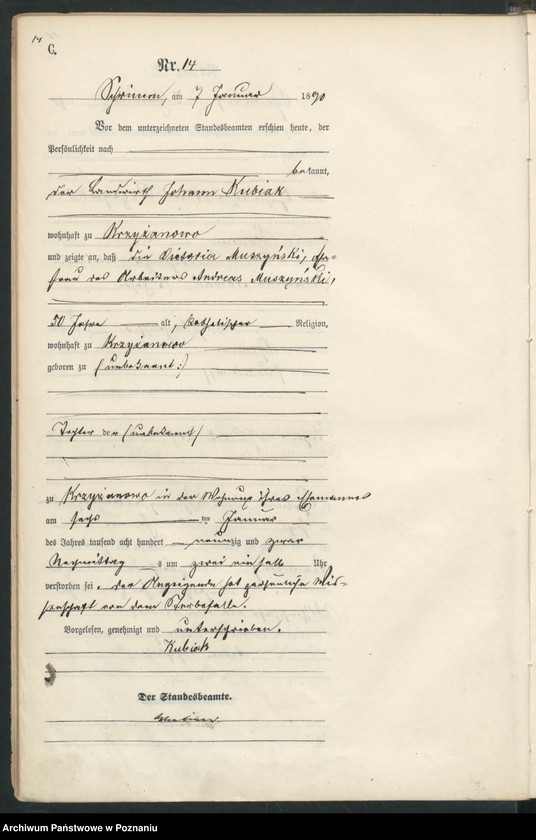 14
C.
Nr. 14
Schrimm, am 7 Januar 1890
Vor dem unterzeichneten Standesbeamten erschien heute, der
Persönlichkeit nach
bekannt,
der Landwirth Johann Kubiak
wohnhaft zu Krzyżanowo
und zeigte an, daß die Victoria Muszyński, Ehe-
frau des Arbeiters Andreas Muszyński,
50 Jahre alt, katholischer Religion,
wohnhaft zu Krzyżanowo
geboren zu (unbekannt:)
Tochter des (unbekannt)
zu Krzyżanowo in der Wohnung ihres Ehemannes
am sechs ten Januar
des Jahres tausend acht hundert neunzig und zwar
Nachmittags um zwei ein halb Uhr
verstorben sei. Der Anzeigende hat persönliche Wis-
senschaft von dem Sterbefalle.
Vorgelesen, genehmigt und unterschrieben.
Kubiak
Der Standesbeamte.
Archiwum Państwowe w Poznaniu